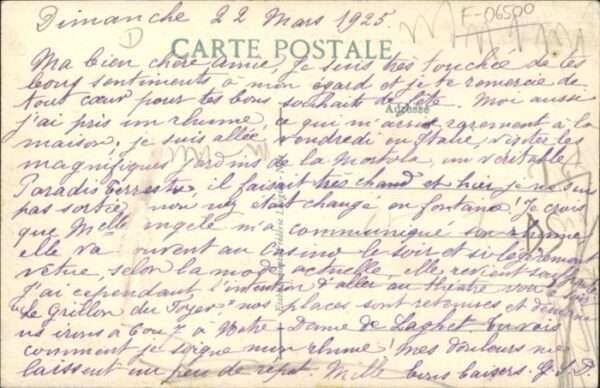 Dimanche 22 Mars 1925.
F-06500
D
CARTE POSTALE
Ma bien chère amie, je suis très touchée de tes
bons sentiments à mon égard et je te remercie de
tout cœur pour tes bons souhaits de fête. Moi aussi
Adresse
j'ai pris un rhume, ce qui m'arrive rarement à la
maison, je suis allée vendredi en Italie, visiter les
magnifiques jardins de la Mortola, un véritable
Paradis terrestre, il faisait très chaud et hier je ne suis
pas sortie, mon nez était changé en fontaine! Je crois
que Melle Angèle m'a communiqué son rhume
elle va souvent au Casino le soir et si légèrement
vêtue, selon la mode actuelle, elle revient
J'ai cependant l'intention d'aller au théâtre voir
"Le Grillon du Foyer" nos places sont retenues et
ns irons à Notre-Dame de Laghet Tu vois
comment je soigne mon rhume! Mes douleurs me
laissent un peu de répit. Mille bons baisers.